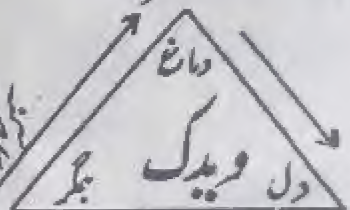 دماغ
جگر ویدک دل